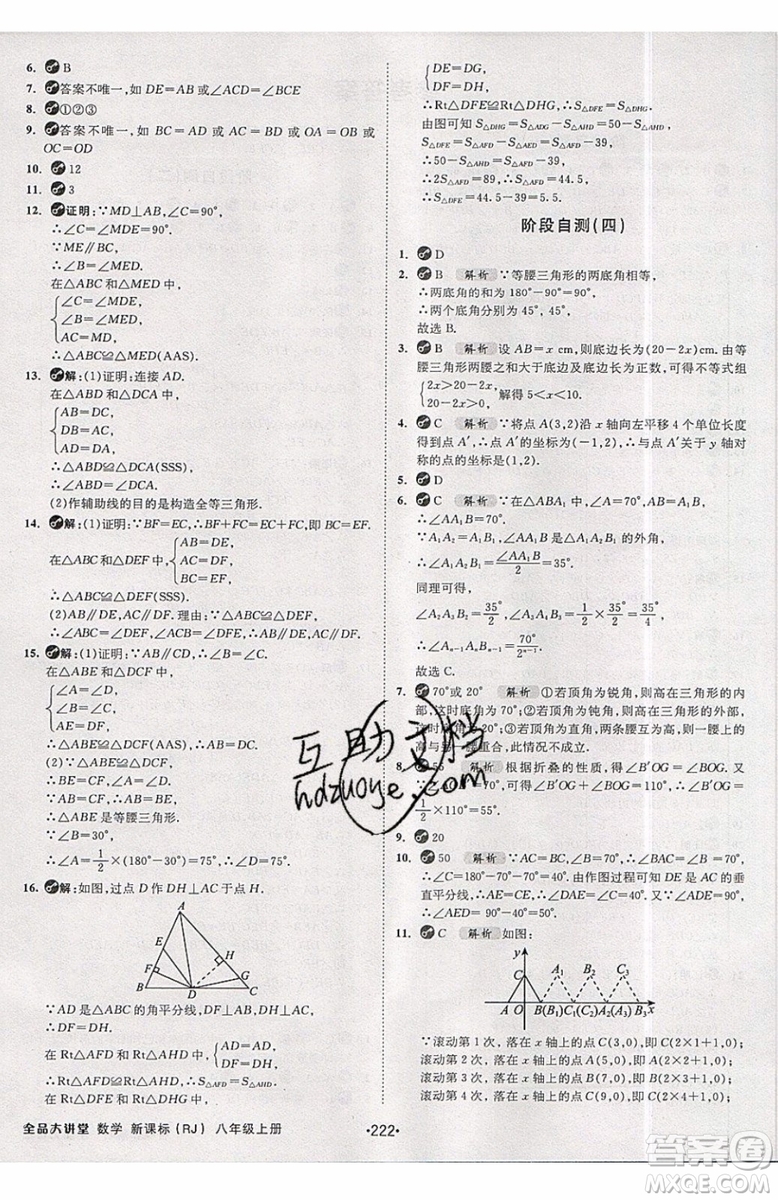 6. B
7. 答案不唯一,如 DE=AB 或∠ACD=∠BCE
8. ①②③
9. 答案不唯一,如 BC=AD 或 AC=BD 或 OA=OB 或
OC=OD
10. 12
11. 3
12. 证明:∵MD⊥AB,∠C=90°,
∴∠C=∠MDE=90°.
∵ME∥BC,
∴∠B=∠MED.
在△ABC 和△MED 中,
{∠C=∠MDE,
∠B=∠MED,
∴△ABC≌△MED(AAS).
13. 解:(1)证明:连接 AD.
在△ABD 和△DCA 中,
{AB=DC,
DB=AC,
AD=DA,
∴△ABD≌△DCA(SSS).
∴∠B=∠C.
(2)作辅助线的目的是构造全等三角形.
14. 解:(1)证明:∵BF=EC,∴BF+FC=EC+FC,即 BC=EF.
在△ABC 和△DEF 中,{AB=DE,
AC=DF,
BC=EF,
∴△ABC≌△DEF(SSS).
(2)AB∥DE,AC∥DF. 理由:∵△ABC≌△DEF,
∴∠ABC=∠DEF,∠ACB=∠DFE,∴AB∥DE,AC∥DF.
15. 解:(1)证明:∵AB∥CD,∴∠B=∠C.
在△ABE 和△DCF 中,
{∠A=∠D,
∠B=∠C,
∴△ABE≌△DCF(AAS).
∴AB=CD.
(2)∵△ABE≌△DCF,
∴AB=CD,BE=CF.
∵AB=CF,∴AB=BE,
∴△ABE 是等腰三角形.
∵∠B=30°,
∴∠A=1/2×(180°-30°)=75°,∴∠D=75°.
16. 解:如图,过点 D 作 DH⊥AC 于点 H.
A
E
H
F
G
B
D
C
∵AD 是△ABC 的角平分线,DF⊥AB,DH⊥AC,
∴DF=DH.
在 Rt△AFD 和 Rt△AHD 中,{AD=AD,
DF=DH,
∴Rt△AFD≌Rt△AHD,∴S△AFD=S△AHD.
在 Rt△DFE 和 Rt△DHG 中,
{DE=DG,
DF=DH,
∴Rt△DFE≌Rt△DHG,∴S△DFE=S△DHG.
由图可知 S△DHG=S△ADG-S△AHD=50-S△AHD,
∴S△DFE=S△AFD-S△AED=S△AFD-39,
∴50-S△AHD=S△AFD-39,
∴2S△AFD=89,∴S△AFD=44.5,
∴S△DFE=44.5-39=5.5.
阶段自测(四)
1. D
2. B 解析 ∵等腰三角形的两底角相等,
∴两底角的和为 180°-90°=90°.
∴两个底角分别为 45°,45°.
故选 B.
3. B 解析 设 AB=x cm,则底边长为(20-2x)cm,由
等腰三角形两腰之和大于底边及底边长为正数,可得不等式组
{2x>20-2x,
20-2x>0, 解得 5<x<10.
4. C 解析 ∵将点 A(3,2)沿 x 轴向左平移 4 个单位长度
得到点 A′,∴点 A′的坐标为(-1,2),∴与点 A′关于 y 轴对
称的点的坐标是(1,2).
5. D
6. C 解析 ∵在△ABA₁ 中,∠A=70°,AB=A₁B,
∴∠AA₁B=70°.
∵A₁A₂=A₁B₁,∠AA₁B 是△A₁A₂B₁ 的外角,
∴∠A₁A₂B₁=∠AA₁B/2=35°.
同理可得,
∠A₂A₃B₂=35°/2,∠A₃A₄B₃=1/2×35°/2=35°/4,
∴∠Aₙ₋₁AₙBₙ₋₁=70°/2ⁿ⁻¹.
故选 C.
7. 70°或 20° 解析 ①若顶角为锐角,则三角形的高在三角形的内
部,这时底角为 70°;②若顶角为钝角,则高在三角形的外部,
这时底角为 20°;③若顶角为直角,两条高互为直角边,此时
高与另一腰重合,此情况不成立.
8. 55 解析 根据折叠的性质,得∠B′OG=∠BOG. 又∵
∠B′OG+∠BOG+∠AOB′=180°,∠AOB′=70°,∴∠B′OG=
1/2×110°=55°.
9. 20
10. 50 解析 ∵AC=BC,∴∠B=∠BAC. 由作图过程可知 DE 是 AC 的垂
直平分线,∴AE=CE,∴AD=DC=2. 又∵∠ADE=90°,
∴∠AED=90°-40°=50°.
11. C 解析 如图:
y
C
A₁
A₂
A₃
A
O
B(B₁)C₁(B₂)C₂(B₃)
x
∵滚动第 1 次,落在 x 轴上的点 C(3,0),即 C(2×1+1,0);
滚动第 2 次,落在 x 轴上的点 A(5,0),即 C(2×2+1,0);
滚动第 3 次,落在 x 轴上的点 B(7,0),即 C(2×3+1,0);
滚动第 4 次,落在 x 轴上的点 C(9,0),即 C(2×4+1,0);
全品大讲堂 数学 新课标(RJ) 八年级上册
·222·
互助文档
hdzuoye.com
答案圈
MXQE.COM